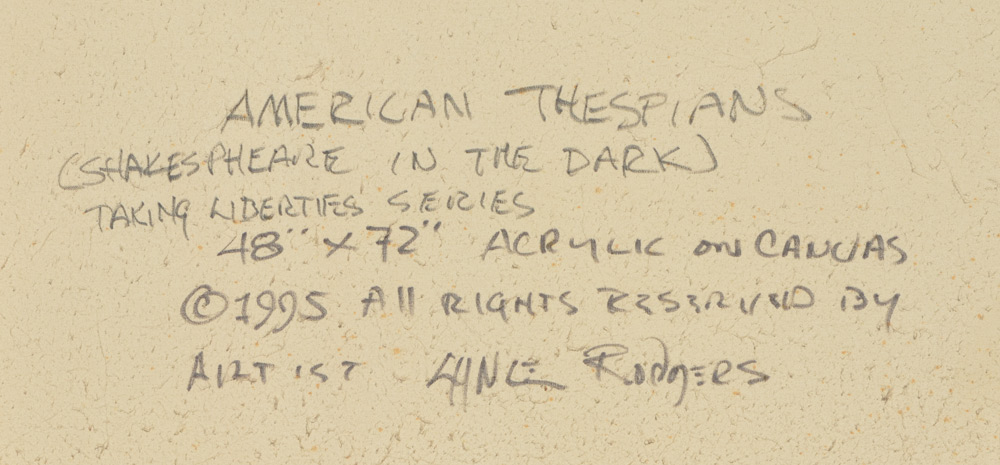 AMERICAN THESPIANS
(SHAKESPHEARE IN THE DARK)
TAKING LIBERTIES SERIES
48" X 72" ACRYLIC ON CANVAS
©1995 All RIGHTS RESERVED BY
ARTIST LYNE RODGERS